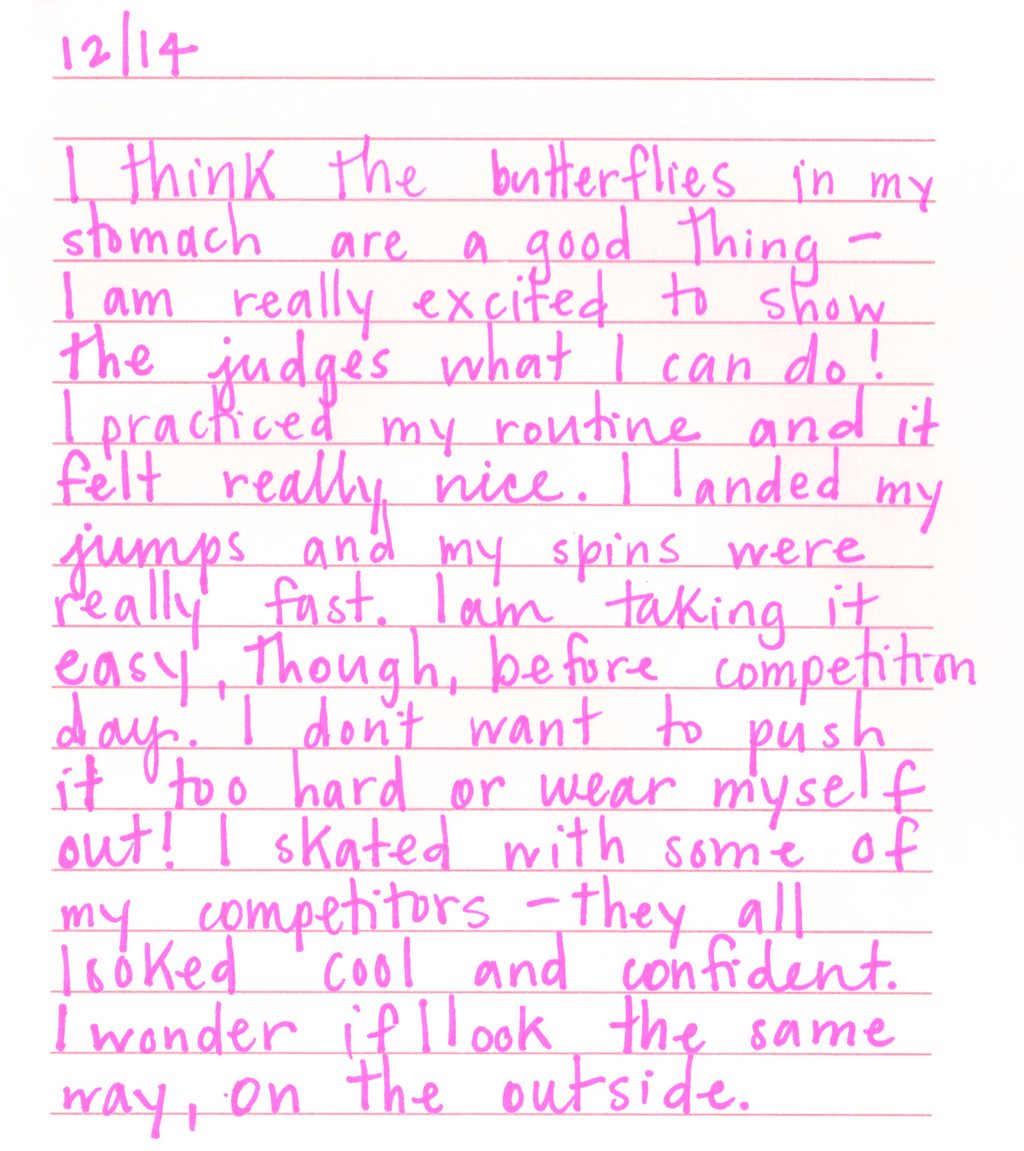 12/14
I think the butterflies in my
stomach are a good thing -
I am really excited to show
the judges what I can do!
I practiced my routine and it
felt really nice. I landed my
jumps and my spins were
really fast. I am taking it
easy, though, before competition
day. I don't want to push
it too hard or wear myself
out! I skated with some of
my competitors - they all
looked cool and confident.
I wonder if I look the same
way, on the outside.